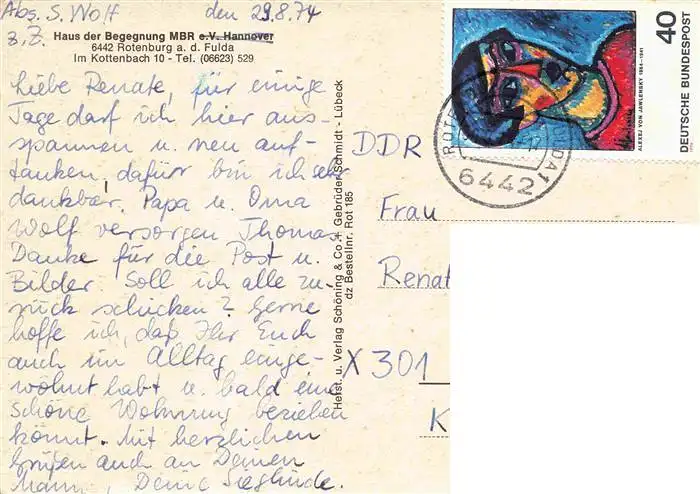 Abs. S. Wolf den 29.8.74
z. Z. Haus der Begegnung MBR e.V. Hannover
6442 Rotenburg a. d. Fulda
Im Kottenbach 10 - Tel. (06623) 529
Liebe Renate, für einige
Tage darf ich hier aus-
spannen u. neu auf-
tanken, dafür bin ich sehr
dankbar. Papa u. Oma
Wolf versorgen Thomas.
Danke für die Post u.
Bilder. Soll ich alle zu-
rück schicken? Gerne
hoffe ich, daß Ihr Euch
auch im Alltag einge-
wöhnt habt u. bald eine
schöne Wohnung beziehen
könnt. Mit herzlichen
Grüßen auch an Deinen
Mann, Deine Sieglinde.
Herst. u. Verlag Schöning & Co. + Gebrüder Schmidt - Lübeck
dz Bestellnr. Rot 185
DDR
Frau
Renat
X 301
K
40
DEUTSCHE BUNDESPOST
ALEXEJ VON JAWLENSKY 1864-1941
6442